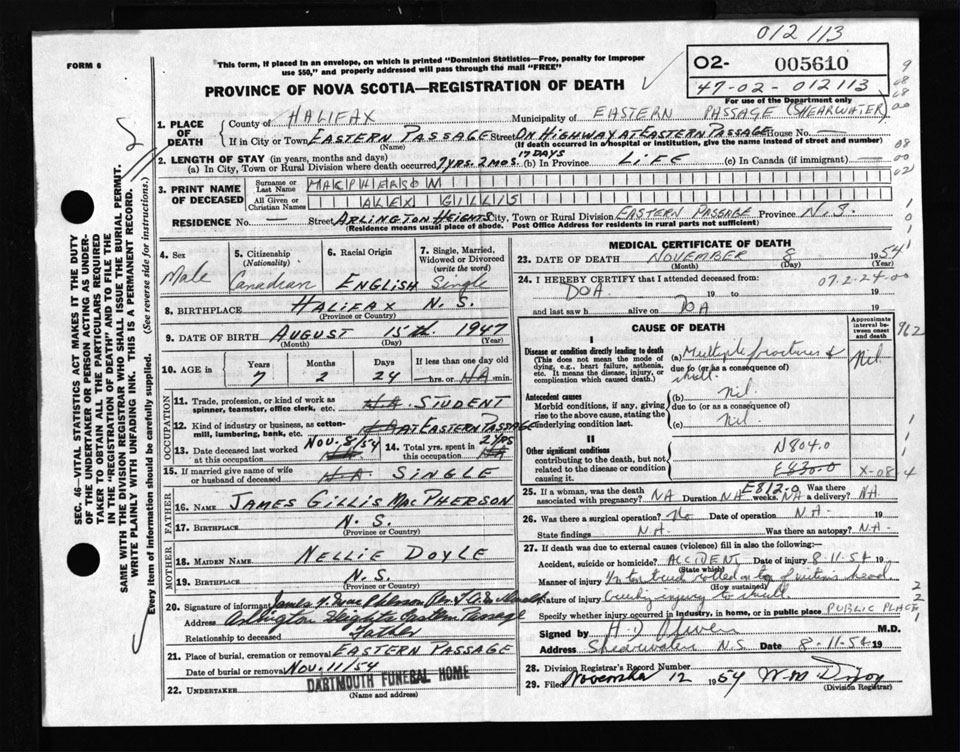 012 113
FORM 6
This form, if placed in an envelope, on which is printed "Dominion Statistics—Free, penalty for improper use $50," and properly addressed will pass through the mail "FREE"
O2- 005610
47-02-012113
For use of the Department only
PROVINCE OF NOVA SCOTIA—REGISTRATION OF DEATH
SEC. 46—VITAL STATISTICS ACT MAKES IT THE DUTY
OF THE UNDERTAKER OR PERSON ACTING AS UNDER-
TAKER TO OBTAIN ALL THE PARTICULARS REQUIRED
IN THE "REGISTRATION OF DEATH" AND TO FILE THE
SAME WITH THE DIVISION REGISTRAR WHO SHALL ISSUE THE BURIAL PERMIT.
WRITE PLAINLY WITH UNFADING INK. THIS IS A PERMANENT RECORD.
Every item of information should be carefully supplied. (See reverse side for instructions.)
1. PLACE OF DEATH
County of HALIFAX Municipality of EASTERN PASSAGE (SHEARWATER)
If in City or Town EASTERN PASSAGE Street ON HIGHWAY AT EASTERN PASSAGE House No. —
(Name) (If death occurred in a hospital or institution, give the name instead of street and number)
2. LENGTH OF STAY (in years, months and days)
(a) In City, Town or Rural Division where death occurred 7 YRS. 2 MOS. 17 DAYS (b) In Province LIFE (c) In Canada (if immigrant) —
3. PRINT NAME OF DECEASED
Surname or Last Name MACPHERSON
All Given or Christian Names ALEX GILLIS
RESIDENCE No. — Street ARLINGTON HEIGHTS City, Town or Rural Division EASTERN PASSAGE Province N.S.
(Residence means usual place of abode. Post Office Address for residents in rural parts not sufficient)
4. Sex Male
5. Citizenship (Nationality) Canadian
6. Racial Origin ENGLISH
7. Single, Married, Widowed or Divorced (write the word) Single
8. BIRTHPLACE HALIFAX N.S.
(Province or Country)
9. DATE OF BIRTH AUGUST 15th 1947
(Month) (Day) (Year)
10. AGE in Years 7 Months 2 Days 24 If less than one day — hrs. or NA min.
OCCUPATION
11. Trade, profession, or kind of work as spinner, teamster, office clerk, etc. N.A. STUDENT
12. Kind of industry or business, as cotton-mill, lumbering, bank, etc. AT EASTERN PASSAGE
13. Date deceased last worked at this occupation NOV. 8/54
14. Total yrs. spent in this occupation 2 yrs NA
15. If married give name of wife or husband of deceased N.A. SINGLE
FATHER
16. NAME JAMES GILLIS MACPHERSON
17. BIRTHPLACE N.S.
(Province or Country)
MOTHER
18. MAIDEN NAME NELLIE DOYLE
19. BIRTHPLACE N.S.
(Province or Country)
20. Signature of informant James
Address Arlington Heights Eastern Passage
Relationship to deceased Father
21. Place of burial, cremation or removal EASTERN PASSAGE
Date of burial or removal Nov. 11/54
22. UNDERTAKER DARTMOUTH FUNERAL HOME
(Name and address)
MEDICAL CERTIFICATE OF DEATH
23. DATE OF DEATH NOVEMBER 8 1954
(Month) (Day) (Year)
24. I HEREBY CERTIFY that I attended deceased from: 07.2-24.00
DOA 19 to 19
and last saw h alive on DOA 19
CAUSE OF DEATH
Approximate interval between onset and death
I
Disease or condition directly leading to death
(This does not mean the mode of dying, e.g., heart failure, asthenia, etc. It means the disease, injury, or complication which caused death.)
(a) Multiple fractures of skull. Nil
due to (or as a consequence of)
Antecedent causes
Morbid conditions, if any, giving rise to the above cause, stating the underlying condition last.
(b) Nil.
due to (or as a consequence of)
(c) Nil.
II
Other significant conditions
contributing to the death, but not related to the disease or condition causing it.
N804.0
E830.0
X-08
962
25. If a woman, was the death associated with pregnancy? NA Duration NA weeks. Was there a delivery? NA.
E812.0 NA
26. Was there a surgical operation? No Date of operation NA. 19
State findings N.A. Was there an autopsy? N.A.
27. If death was due to external causes (violence) fill in also the following:—
Accident, suicide or homicide? ACCIDENT Date of injury 8-11-54 19
(State which)
Manner of injury 1/2 ton truck rolled on top of victim's head.
(How sustained)
Nature of injury injury to skull.
Specify whether injury occurred in industry, in home, or in public place PUBLIC PLACE
Signed by M.D.
Address Shearwater N.S. Date 8-11-54 19
28. Division Registrar's Record Number
29. Filed November 12 1954 W.M.
(Division Registrar)